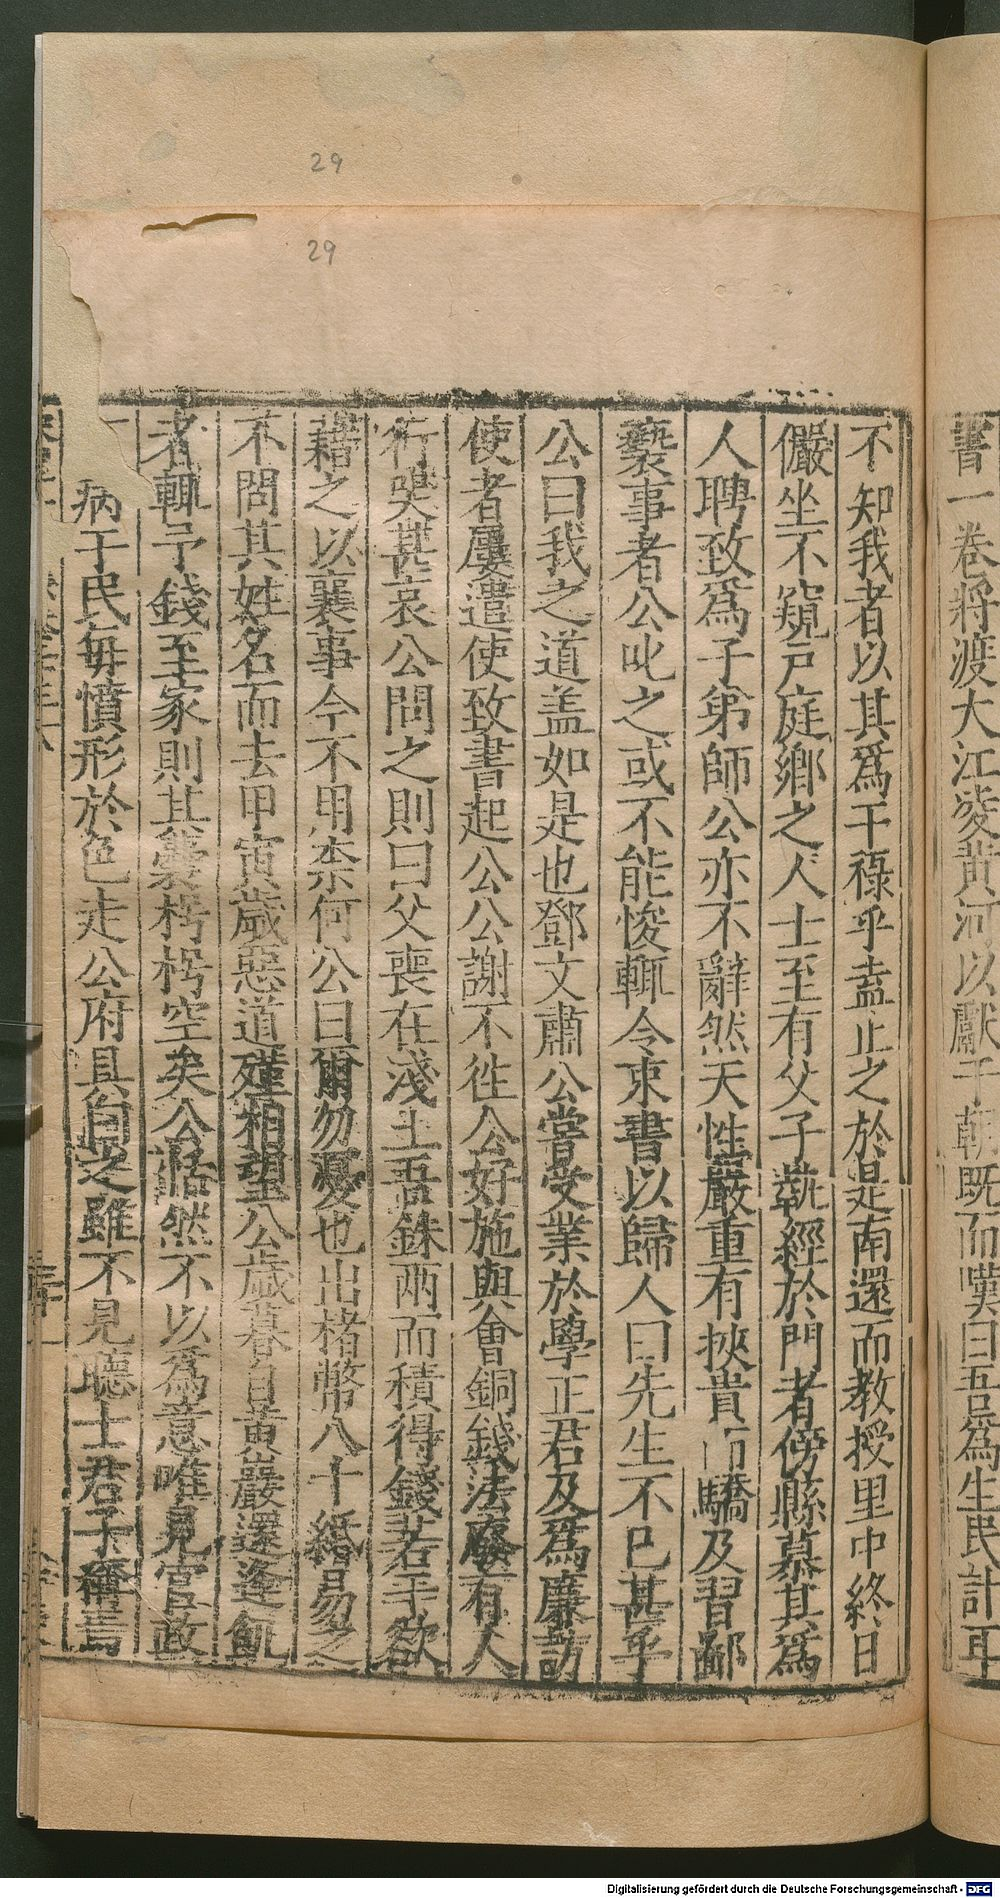 29
29
書一卷將渡大江凌黃河以獻于朝既而嘆曰吾爲生民計耳
不知我者以其爲干祿乎盍止之於是南還而教授里中終日
儼坐不窺戶庭鄉之人士至有父子執經於門者傍縣慕其爲
人聘致爲子弟師公亦不辭然天性嚴重有挾貴而驕及習鄙
褻事者公叱之或不能悛輒令束書以歸人曰先生不已甚乎
公曰我之道盖如是也鄧文肅公嘗受業於學正君及爲廉訪
使者屢遣使致書起公公謝不徃公好施與會銅錢法廢有人
行哭甚哀公問之則曰父喪在淺土吾銖兩而積得錢若干欲
藉之以襄事今不用柰何公曰爾勿憂也出楮幣八十緡易之
不問其姓名而去甲寅歲惡道殣相望公歲暮自黃巖還逢飢
者輒予錢至家則其囊枵枵空矣公恬然不以爲意唯見官政
病于民每憤形於色走公府具白之雖不見聽士君子稱焉
Digitalisierung gefördert durch die Deutsche Forschungsgemeinschaft - DFG